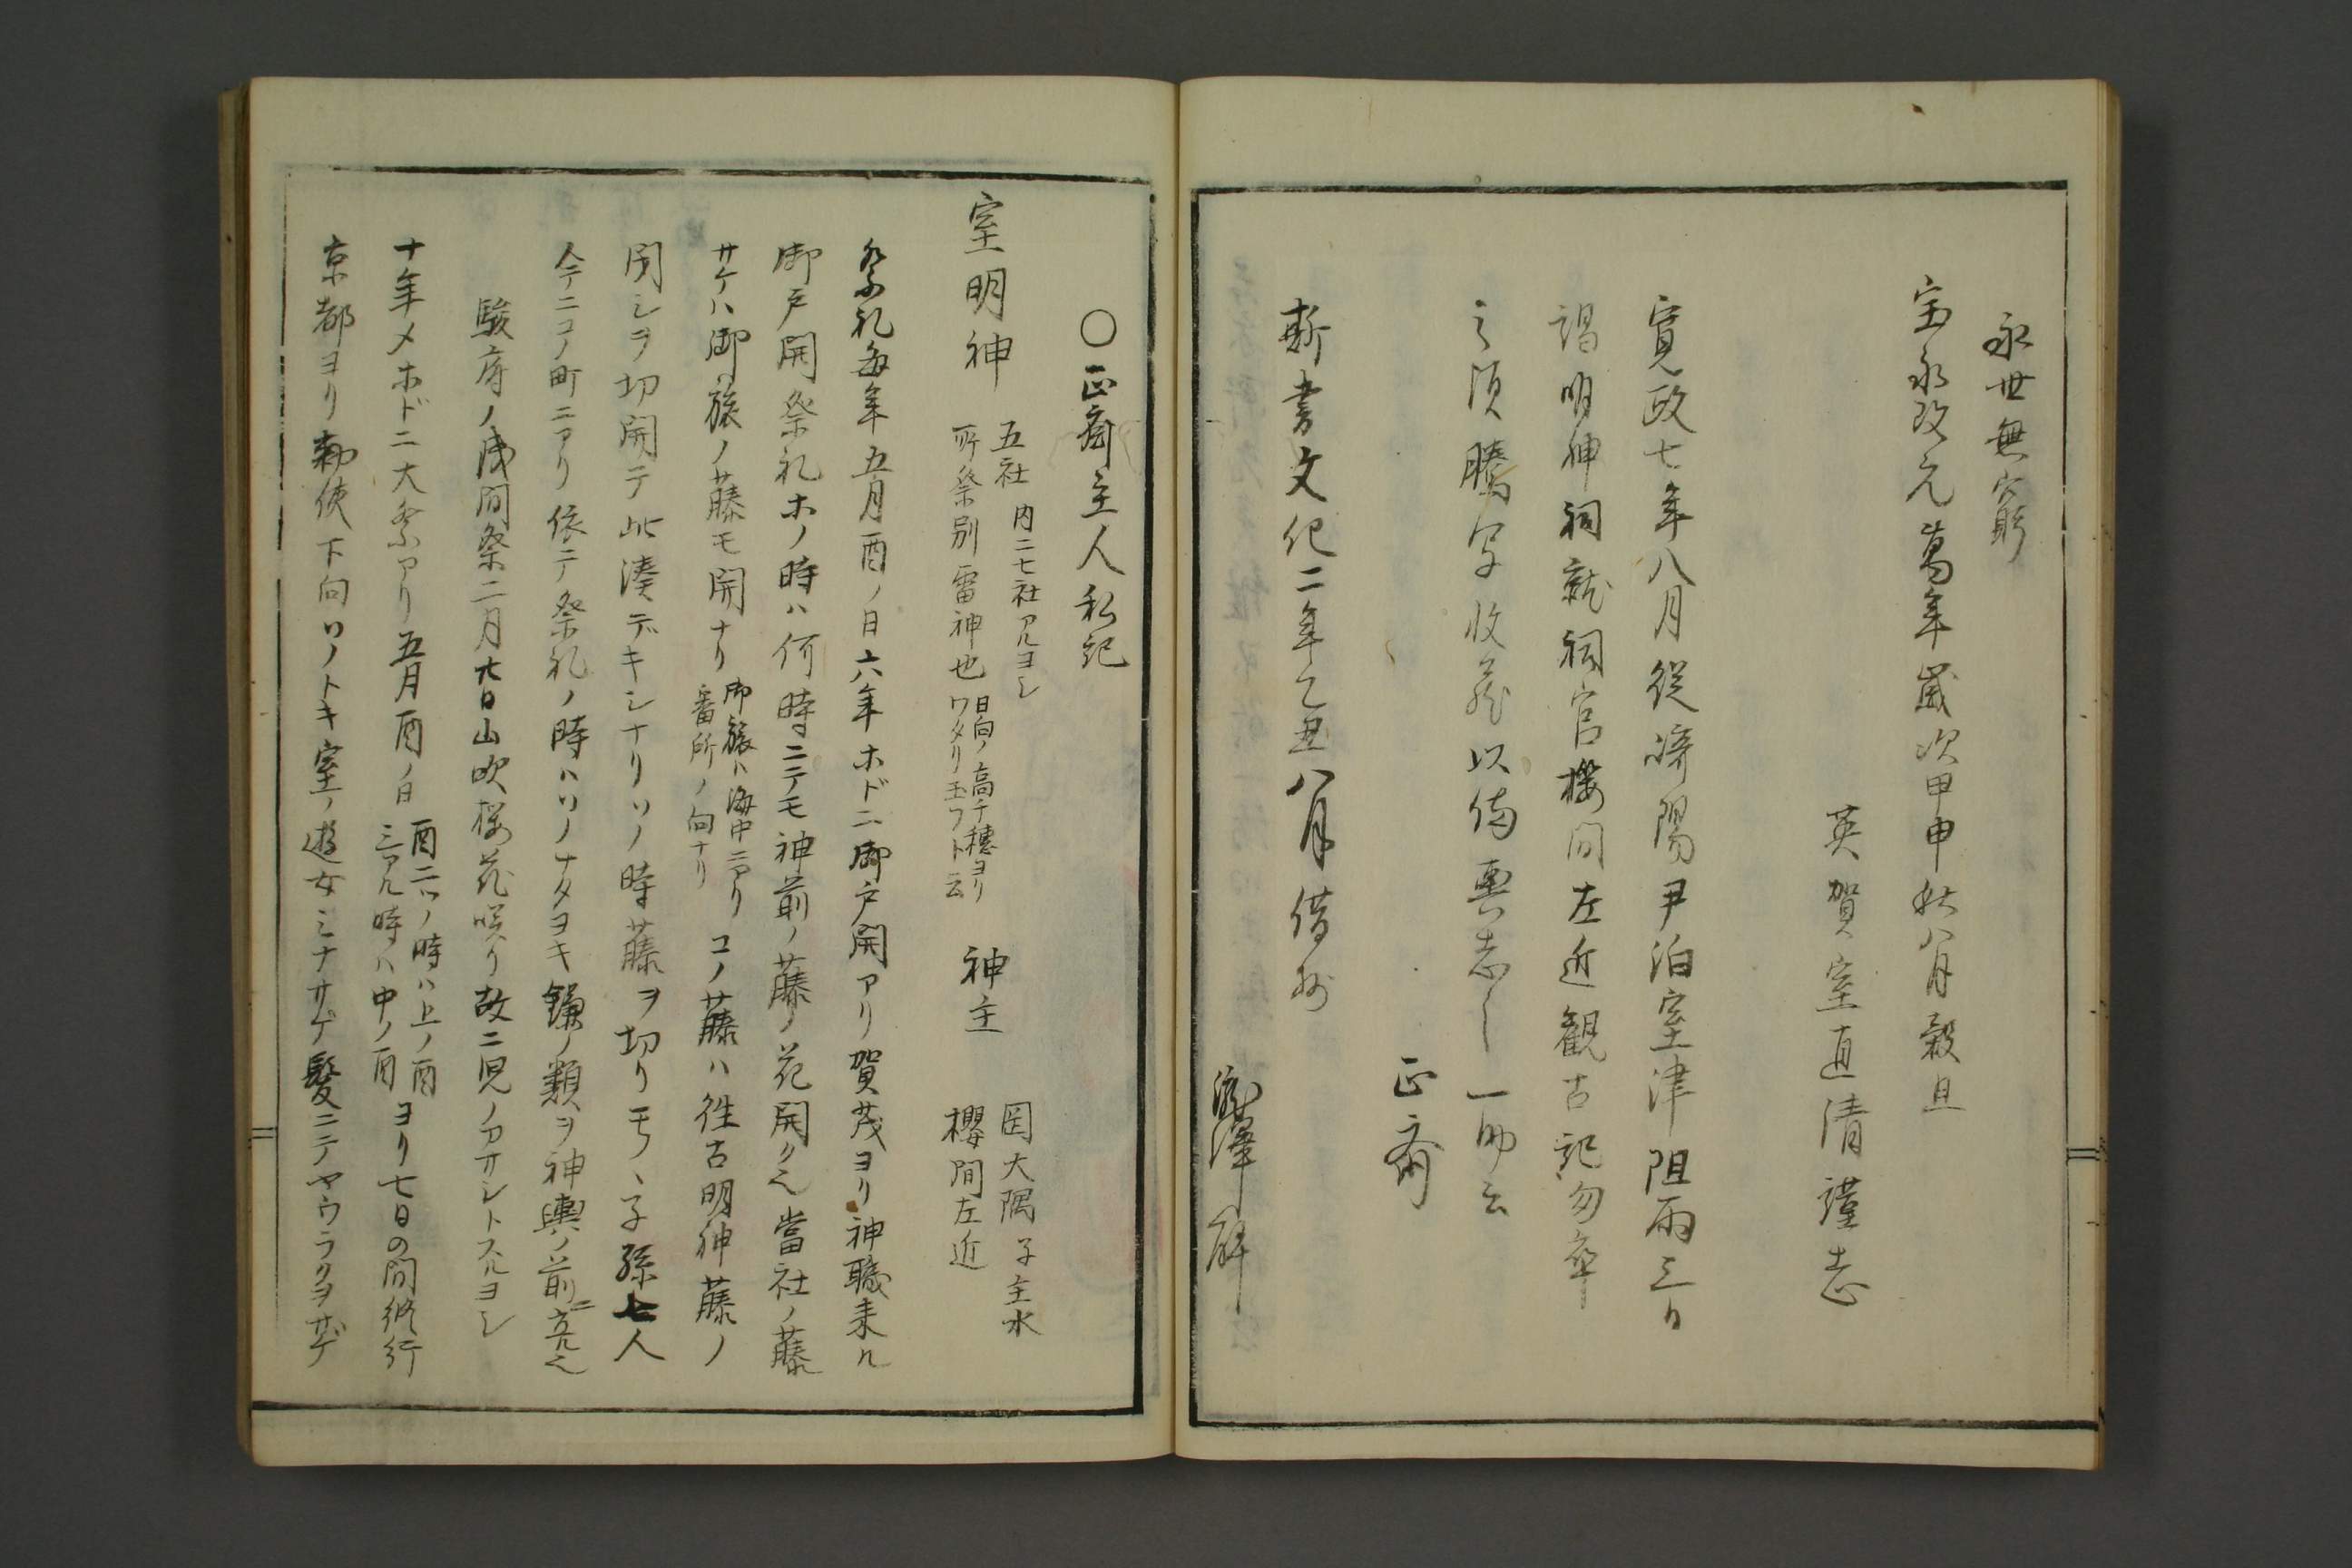 永世無窮
宝永改元萬年歳次甲申秋八月穀旦
英賀室直清謹志
寛政七年八月従崎陽尹泊室津阻雨三日
謁明神祠就祠官櫻間左近観古記匆卒
之須騰写收蔵以備輿志之一助云
正斎
斯書文化二年乙丑八月借抄
瀧澤解
〇正斎主人私記
室明神
五社 内二七社アルヨシ
所祭別雷神也
日向ノ高千穂ヨリ
ワタリ玉フト云
神主
岡大隅子主水
櫻間左近
祭礼毎年五月酉ノ日六年ホドニ御戸開アリ賀茂ヨリ神職来ル
御戸開祭礼ホノ時ハ何時ニテモ神前ノ藤ノ花開ク也當社ノ藤
サケハ御旅ノ藤モ開ナリ
御旅ハ海中ニアリ
番所ノ向ナリ
コノ藤ハ往古明神藤ノ
間シヲ切開テ此湊デキシナリソノ時藤ヲ切リモノヽ子孫七人
今テニコノ町ニアリ依ニテ祭礼ノ時ハソノナタヨキ鎌ノ類ヲ神輿ノ前ニ立ル也
駿府ノ浅間祭二月廿日山吹桜花咲ク故ニ児ノカサシトスルヨシ
十年メホドニ大祭アリ五月酉ノ日
酉二ツノ時ハ上ノ酉
三アル時ハ中ノ酉
ヨリ七日の間修行
京都ヨリ勅使下向ソノトキ室ノ遊女ミナサゲ髪ニテヤウラクヲサゲ